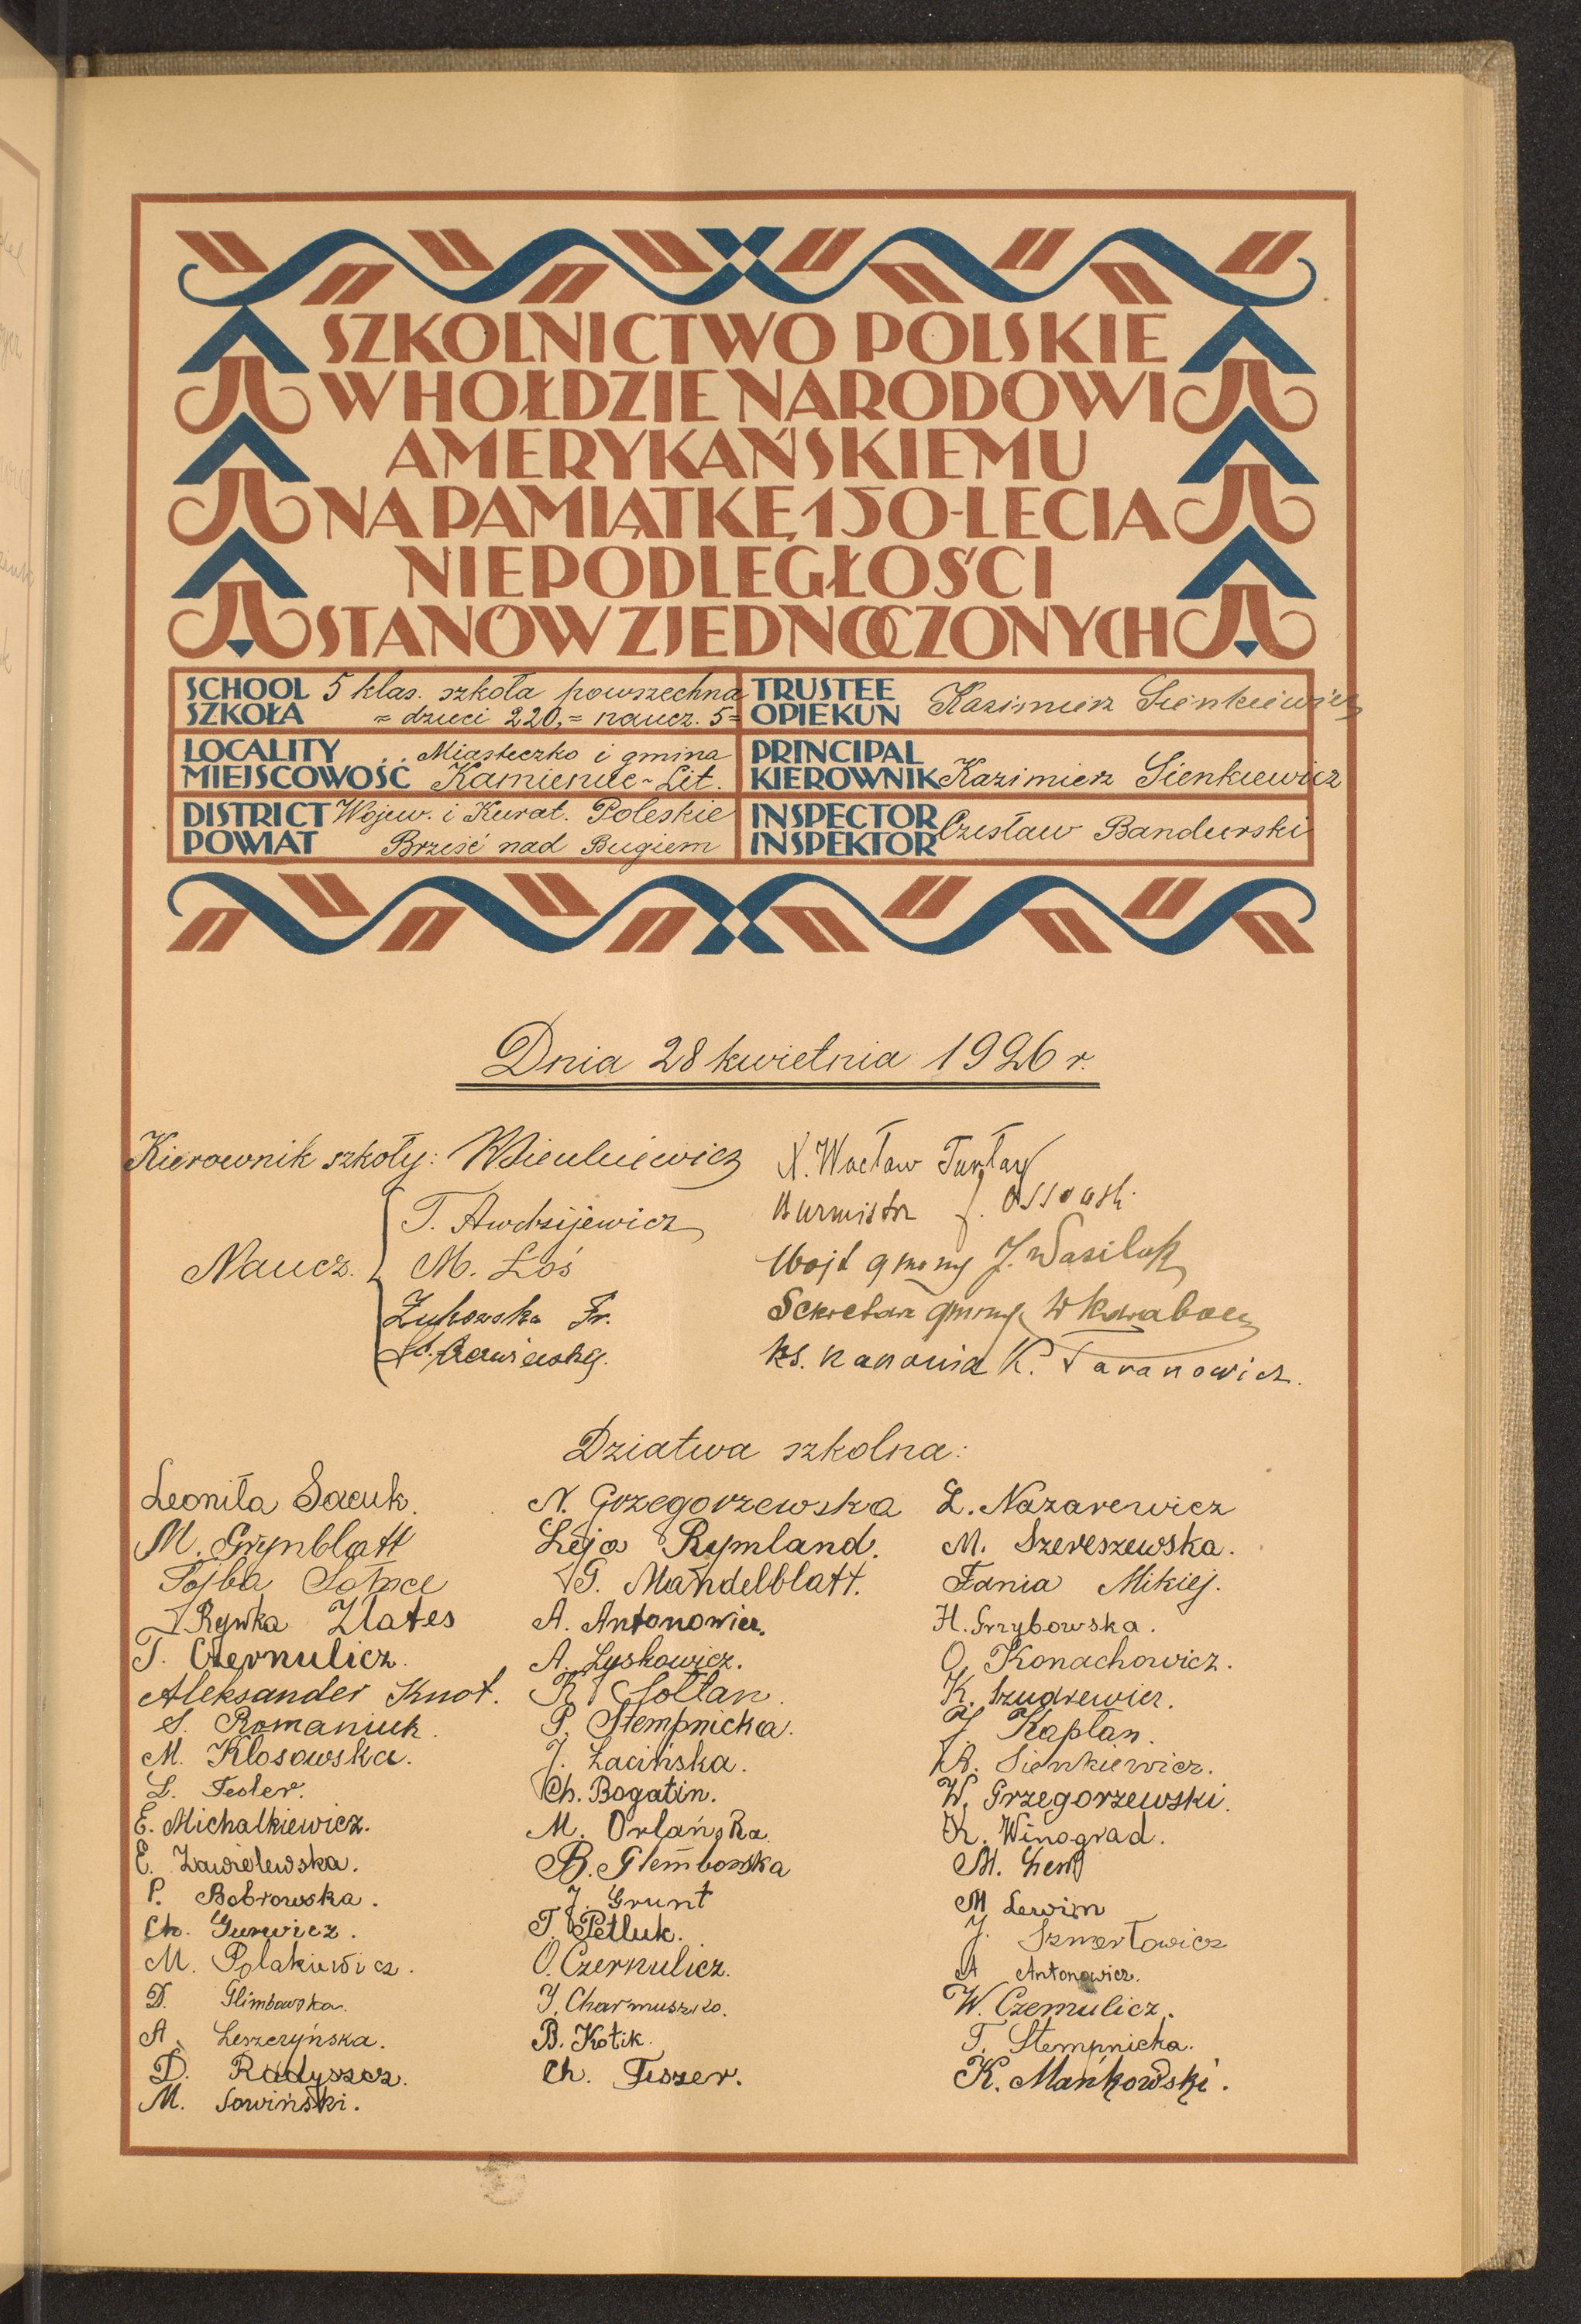 SZKOLNICTWO POLSKIE
W HOŁDZIE NARODOWI
AMERYKAŃSKIEMU
NA PAMIĄTKĘ 150-LECIA
NIEPODLEGŁOŚCI
STANÓW ZJEDNOCZONYCH
SCHOOL
SZKOŁA
5 klas. szkoła powszechna
= dzieci 220, = naucz. 5 =
TRUSTEE
OPIEKUN
Kazimierz Sienkiewicz
LOCALITY
MIEJSCOWOŚĆ
Miasteczko i gmina
Kamieniec-Lit.
PRINCIPAL
KIEROWNIK
Kazimierz Sienkiewicz
DISTRICT
POWIAT
Wojew. i Kurat. Poleskie
Brześć nad Bugiem
INSPECTOR
INSPEKTOR
Czesław Bandurski
Dnia 28 kwietnia 1926 r.
Kierownik szkoły: KSienkiewicz
Naucz.
T. Awdziejewicz
M. Łoś
Żukowska Fr.
X. Wacław Turłay
Burmistrz J. Ossowsk.
Wójt gminy J. Wasiluk
Sekretarz gminy W
ks. kanonik K. Taranowicz.
Dziatwa szkolna:
Leoniła Sacuk.
M. Grynblatt
Fojba
Rywka Zlates
T. Czernulicz.
Aleksander Knot.
S. Romaniuk.
M. Klosowska.
L. Fesler.
E. Michalkiewicz.
E. Zawielewska.
P. Bobrowska.
Ch. Gurwicz.
M. Polakiewicz.
D. Glimbowska.
A. Leszczyńska.
D. Radyszcz.
M. Sowiński.
N. Grzegorzewska
Leja Rymland.
G. Mandelblatt.
A. Antonowicz.
A. Lyskowicz.
K. Sołtan.
P. Stempnicka.
J. Łacińska.
Ch. Bogatin.
M. Orlańska
B. Glembowska
J. Grunt
T. Petluk.
O. Czernulicz.
J. Charmuszko.
B. Kotik.
Ch. Feszer.
L. Nazarewicz
M. Szereszewska.
Fania Mikiej.
H. Grzybowska.
O. Konachowicz.
K. Szudrewicz.
J. Kapłan.
R. Sienkiewicz.
W. Grzegorzewski.
K. Winograd.
M.
M Lewin
J. Szmerłowicz
A Antonowicz.
W. Czemulicz.
T. Stempnicka.
K. Mańkowski.